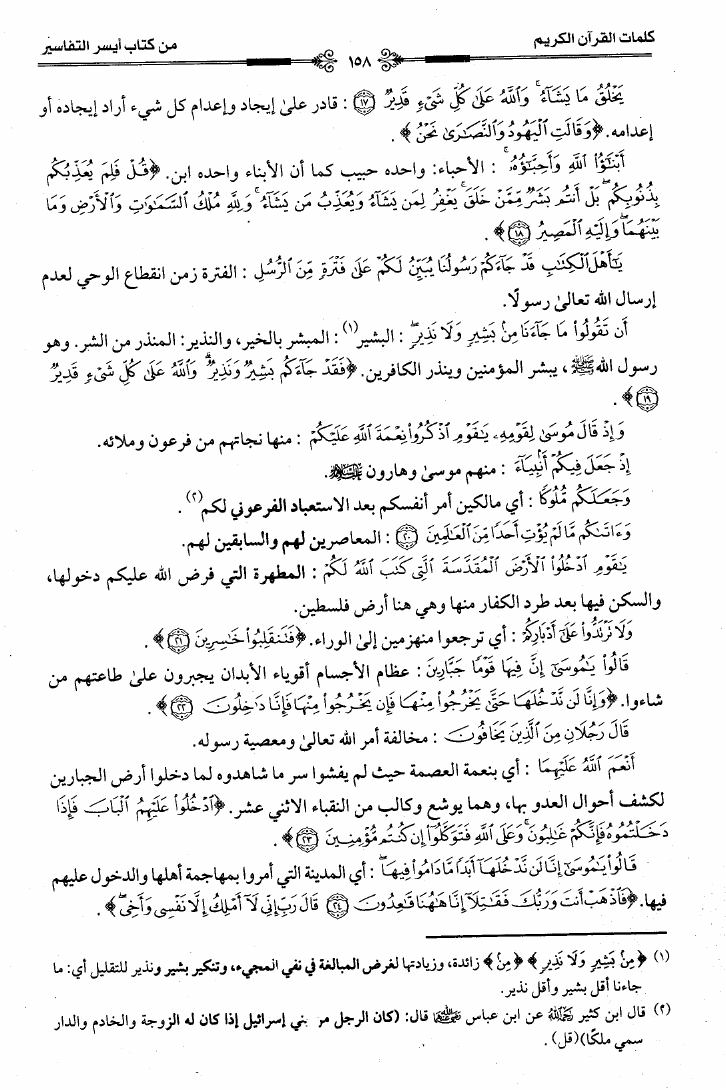 كلمات القرآن الكريم
١٥٨
من كتاب أيسر التفاسير
يَخْلُقُ مَا يَشَاءُ وَاللَّهُ عَلَىٰ كُلِّ شَيْءٍ قَدِيرٌ ١٧ : قادر علىٰ إيجاد وإعدام كل شيء أراد إيجاده أو
إعدامه. ﴿وَقَالَتِ الْيَهُودُ وَالنَّصَارَىٰ نَحْنُ﴾ .
أَبْنَاؤُا اللَّهِ وَأَحِبَّاؤُهُ : الأحباء: واحده حبيب كما أن الأبناء واحده ابن. ﴿قُلْ فَلِمَ يُعَذِّبُكُم
بِذُنُوبِكُم بَلْ أَنتُم بَشَرٌ مِّمَّنْ خَلَقَ يَغْفِرُ لِمَن يَشَاءُ وَيُعَذِّبُ مَن يَشَاءُ وَلِلَّهِ مُلْكُ السَّمَاوَاتِ وَالْأَرْضِ وَمَا
بَيْنَهُمَا وَإِلَيْهِ الْمَصِيرُ ١٨﴾ .
يَا أَهْلَ الْكِتَابِ قَدْ جَاءَكُمْ رَسُولُنَا يُبَيِّنُ لَكُمْ عَلَىٰ فَتْرَةٍ مِّنَ الرُّسُلِ : الفترة زمن انقطاع الوحي لعدم
إرسال الله تعالىٰ رسولًا.
أَن تَقُولُوا مَا جَاءَنَا مِن بَشِيرٍ وَلَا نَذِيرٍ : البشير(١) : المبشر بالخير، والنذير: المنذر من الشر. وهو
رسول الله ﷺ، يبشر المؤمنين وينذر الكافرين. ﴿فَقَدْ جَاءَكُم بَشِيرٌ وَنَذِيرٌ وَاللَّهُ عَلَىٰ كُلِّ شَيْءٍ قَدِيرٌ
١٩﴾ .
وَإِذْ قَالَ مُوسَىٰ لِقَوْمِهِ يَا قَوْمِ اذْكُرُوا نِعْمَةَ اللَّهِ عَلَيْكُمْ : منها نجاتهم من فرعون وملائه.
إِذْ جَعَلَ فِيكُمْ أَنبِيَاءَ : منهم موسىٰ وهارون
وَجَعَلَكُم مُّلُوكًا : أي مالكين أمر أنفسكم بعد الاستعباد الفرعوني لكم(٢) .
وَآتَاكُم مَّا لَمْ يُؤْتِ أَحَدًا مِّنَ الْعَالَمِينَ ٢٠ : المعاصرين لهم والسابقين لهم.
يَا قَوْمِ ادْخُلُوا الْأَرْضَ الْمُقَدَّسَةَ الَّتِي كَتَبَ اللَّهُ لَكُمْ : المطهرة التي فرض الله عليكم دخولها،
والسكن فيها بعد طرد الكفار منها وهي هنا أرض فلسطين.
وَلَا تَرْتَدُّوا عَلَىٰ أَدْبَارِكُمْ : أي ترجعوا منهزمين إلىٰ الوراء. ﴿فَتَنقَلِبُوا خَاسِرِينَ ٢١﴾ .
قَالُوا يَا مُوسَىٰ إِنَّ فِيهَا قَوْمًا جَبَّارِينَ : عظام الأجسام أقوياء الأبدان يجبرون علىٰ طاعتهم من
شاءوا. ﴿وَإِنَّا لَن نَّدْخُلَهَا حَتَّىٰ يَخْرُجُوا مِنْهَا فَإِن يَخْرُجُوا مِنْهَا فَإِنَّا دَاخِلُونَ ٢٢﴾ .
قَالَ رَجُلَانِ مِنَ الَّذِينَ يَخَافُونَ : مخالفة أمر الله تعالىٰ ومعصية رسوله.
أَنْعَمَ اللَّهُ عَلَيْهِمَا : أي بنعمة العصمة حيث لم يفشوا سر ما شاهدوه لما دخلوا أرض الجبارين
لكشف أحوال العدو بها، وهما يوشع وكالب من النقباء الاثني عشر. ﴿ادْخُلُوا عَلَيْهِمُ الْبَابَ فَإِذَا
دَخَلْتُمُوهُ فَإِنَّكُمْ غَالِبُونَ وَعَلَى اللَّهِ فَتَوَكَّلُوا إِن كُنتُم مُّؤْمِنِينَ ٢٣﴾ .
قَالُوا يَا مُوسَىٰ إِنَّا لَن نَّدْخُلَهَا أَبَدًا مَّا دَامُوا فِيهَا : أي المدينة التي أمروا بمهاجمة أهلها والدخول عليهم
فيها. ﴿فَاذْهَبْ أَنتَ وَرَبُّكَ فَقَاتِلَا إِنَّا هَاهُنَا قَاعِدُونَ ٢٤ قَالَ رَبِّ إِنِّي لَا أَمْلِكُ إِلَّا نَفْسِي وَأَخِي﴾ .
(١) ﴿مِن بَشِيرٍ وَلَا نَذِيرٍ﴾ ﴿مِن﴾ زائدة، وزيادتها لغرض المبالغة في نفي المجيء، وتنكير بشير ونذير للتقليل أي: ما
جاءنا أقل بشير وأقل نذير.
(٢) قال ابن كثير عن ابن عباس قال: (كان الرجل من بني إسرائيل إذا كان له الزوجة والخادم والدار
سمي ملكًا)(قل) .